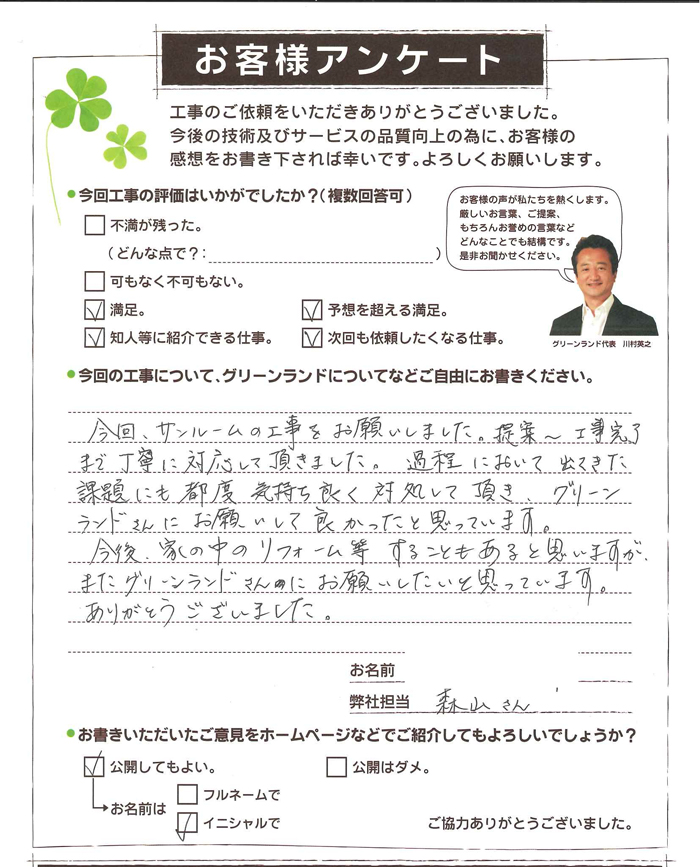 お客様アンケート
工事のご依頼をいただきありがとうございました。
今後の技術及びサービスの品質向上の為に、お客様の
感想をお書き下されば幸いです。よろしくお願いします。
今回工事の評価はいかがでしたか？（複数回答可）
不満が残った。
（どんな点で？：）
可もなく不可もない。
満足。
予想を超える満足。
知人等に紹介できる仕事。
次回も依頼したくなる仕事。
お客様の声が私たちを熱くします。
厳しいお言葉、ご提案、
もちろんお誉めの言葉など
どんなことでも結構です。
是非お聞かせください。
グリーンランド代表　川村英之
今回の工事について、グリーンランドについてなどご自由にお書きください。
今回、サンルームの工事をお願いしました。提案～工事完了
まで丁寧に対応して頂きました。過程において出てきた
課題にも都度気持ち良く対処して頂き、グリーン
ランドさんにお願いして良かったと思っています。
今後、家の中のリフォーム等することもあると思いますが、
またグリーンランドさんにお願いしたいと思っています。
ありがとうございました。
お名前
弊社担当　森山さん
お書きいただいたご意見をホームページなどでご紹介してもよろしいでしょうか？
公開してもよい。
公開はダメ。
お名前は
フルネームで
イニシャルで
ご協力ありがとうございました。